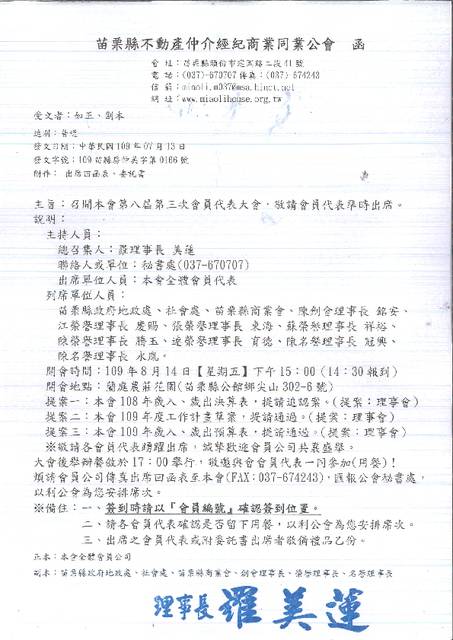 苗栗縣不動產仲介經紀商業同業公會 函
會 址：苗栗縣頭份市
電 話：(037)-670707 傳真：(037) 674243
信 箱：miaoli.m037@msa.hinet.net
網 址：www.miaolihouse.org.tw
受文者：如正、副本
速別：普通
發文日期：中華民國 109 年 07 月 13 日
發文字號：109 苗縣房仲美字第 0166 號
附件： 出席回函表、委託書
主旨：召開本會第八屆第三次會員代表大會，敬請會員代表準時出席。
說明：
主持人員：
總召集人：羅理事長 美蓮
聯絡人或單位：秘書處(037-670707)
出席單位人員：本會全體會員代表
列席單位人員：
苗栗縣政府地政處、社會處、苗栗縣商業會、陳創會理事長 銘安、
江榮譽理事長 慶賜、張榮譽理事長 東海、蘇榮譽理事長 祥裕、
陳榮譽理事長 勝玉、連榮譽理事長 育德、陳名譽理事長 冠興、
陳名譽理事長 永胤。
開會時間：109 年 8 月 14 日【星期五】下午 15：00 (14：30 報到)
開會地點：蘭庭農莊花園(苗栗縣公館鄉尖山 302-6 號)
提案一：本會 108 年歲入、歲出決算表，提請追認案。(提案：理事會)
提案二：本會 109 年度工作計畫草案，提請通過。(提案：理事會)
提案三：本會 109 年歲入、歲出預算表，提請通過。(提案：理事會)
※敬請各會員代表踴躍出席，誠摯歡迎會員公司共襄盛舉。
大會後舉辦餐敘於 17：00 舉行，敬邀與會會員代表一同參加(用餐)！
煩請會員公司傳真出席回函表至本會(FAX：037-674243)，匯報公會秘書處，
以利公會為您安排席次。
※備註：一、簽到時請以『會員編號』確認簽到位置。
二、請各會員代表確認是否留下用餐，以利公會為您安排席次。
三、出席之會員代表或附委託書出席者敬備禮品乙份。
正本：本會全體會員公司
副本：苗栗縣政府地政處、社會處、苗栗縣商業會、創會理事長、榮譽理事長、名譽理事長
理事長 羅美蓮